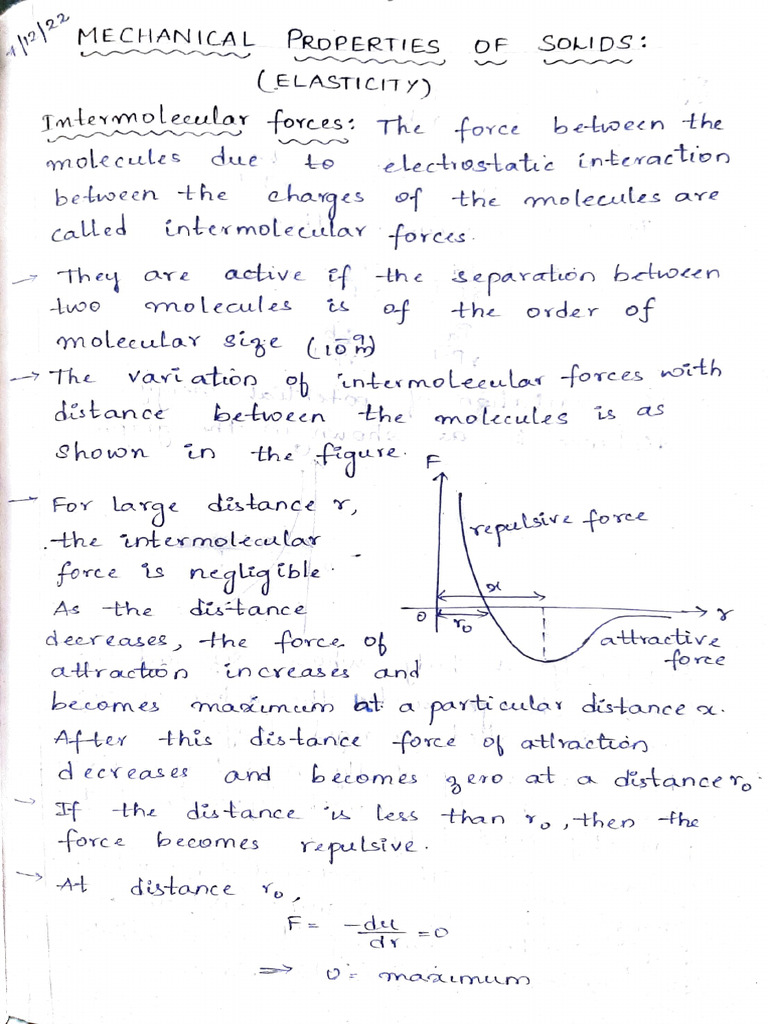 1/12/22
MECHANICAL PROPERTIES OF SOLIDS:
(ELASTICITY)
Intermolecular forces: The force between the
molecules due to electrostatic interaction
between the charges of the molecules are
called intermolecular forces.
→ They are active if the separation between
two molecules is of the order of
molecular size (10⁻⁹m)
→ The variation of intermolecular forces with
distance between the molecules is as
shown in the figure.
F
repulsive force
x
0
r₀
r
attractive
force
→ For large distance r,
the intermolecular
force is negligible.
As the distance
decreases, the force of
attraction increases and
becomes maximum at a particular distance x.
After this distance force of attraction
decreases and becomes zero at a distance r₀.
→ If the distance is less than r₀, then the
force becomes repulsive.
→ At distance r₀,
F = -du/dr = 0
⇒ U = maximum